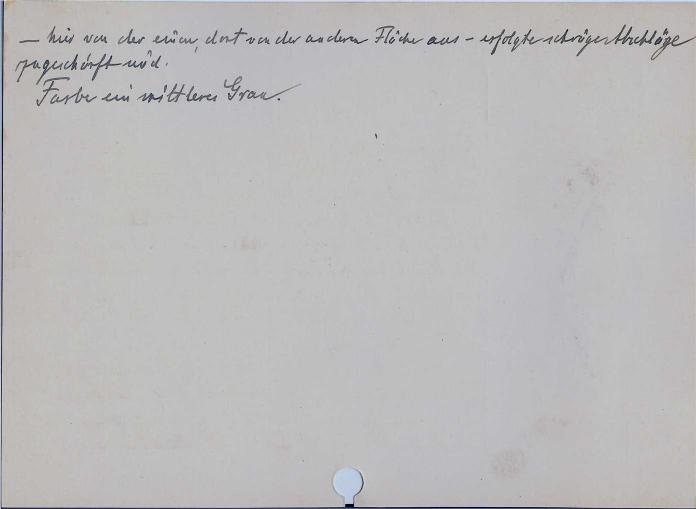 — hier von der einen, dort von der anderen Fläche aus – erfolgte schräge Abschläge
zugeschärft sind.
Farbe ein mittleres Grau.